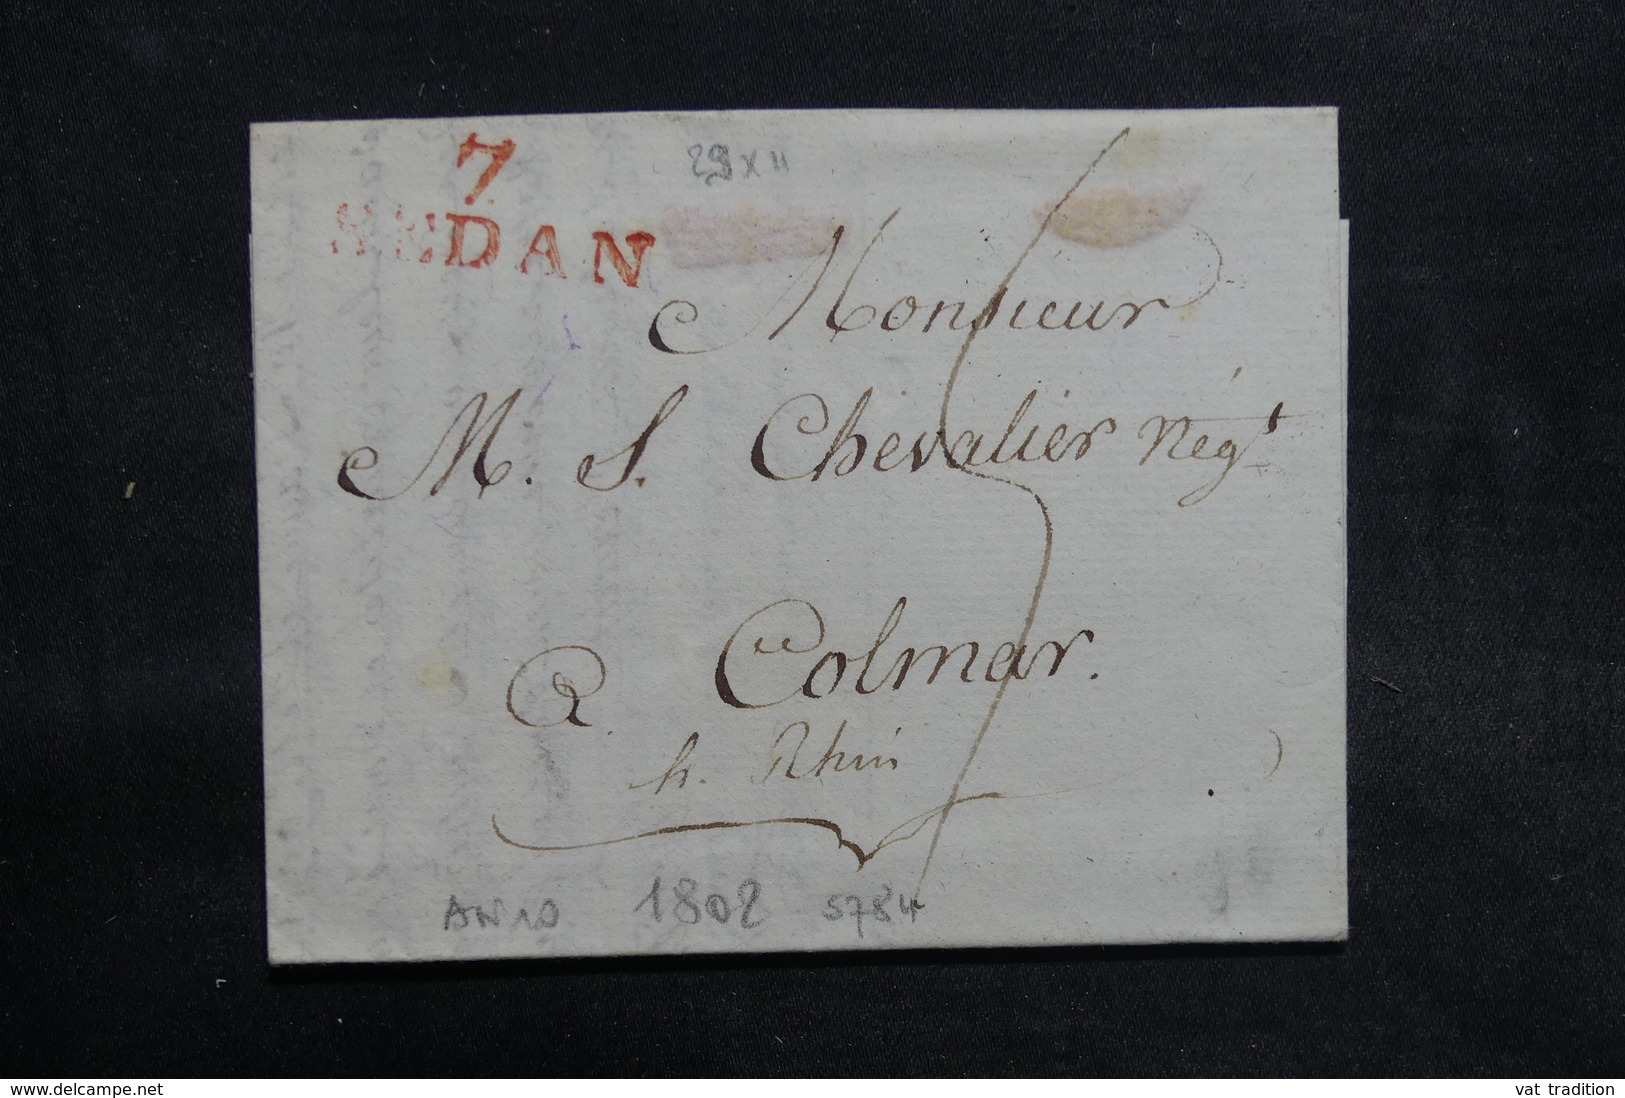 7
SEDAN
29 x 11
Monsieur
M. S. Chevalier Nég.t
a Colmar.
h. Rhin
AN 10 1802 5784
www.delcampe.net
vat tradition